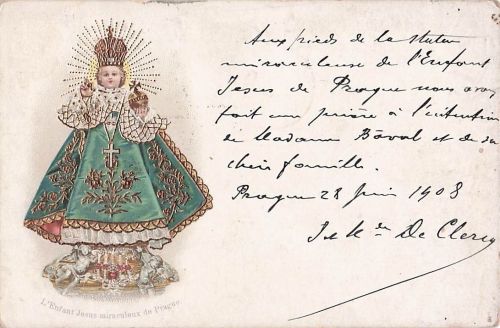 Aux pieds de la statue
miraculeuse de l'Enfant
Jesus de Prague nous avons
fait une prière à l'intention
de Madame Boval et de sa
chère famille.
Prague 28 Juin 1908
De Clercq
L'Enfant Jesus miraculeux de Prague